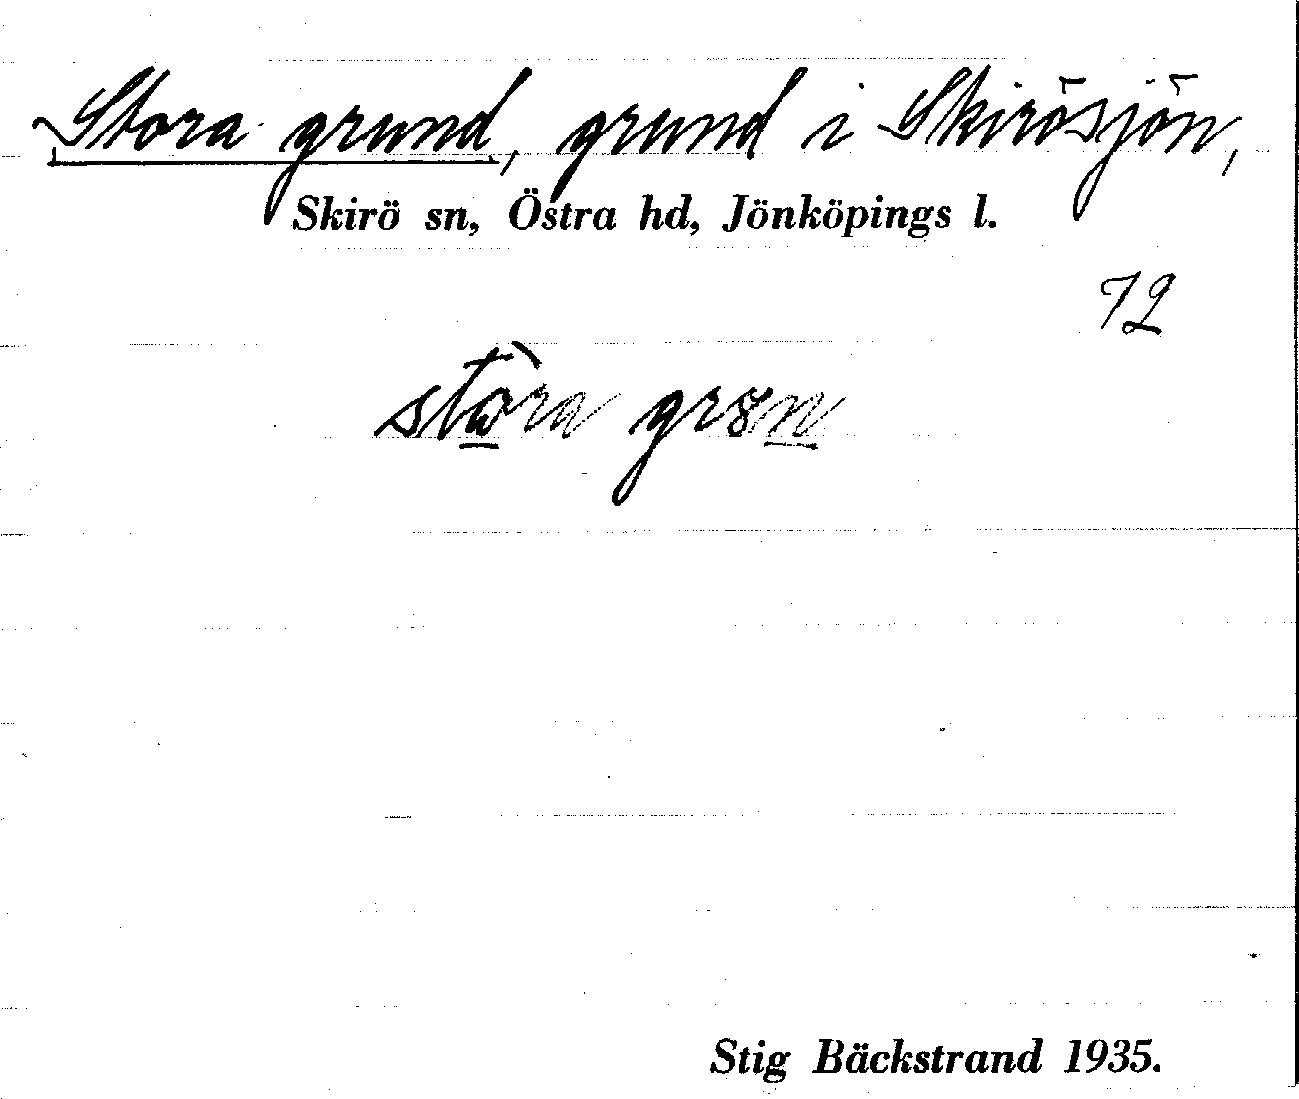 Stora grund, grund i Skirösjön,
Skirö sn, Östra hd, Jönköpings l.
72
Stig Bäckstrand 1935.